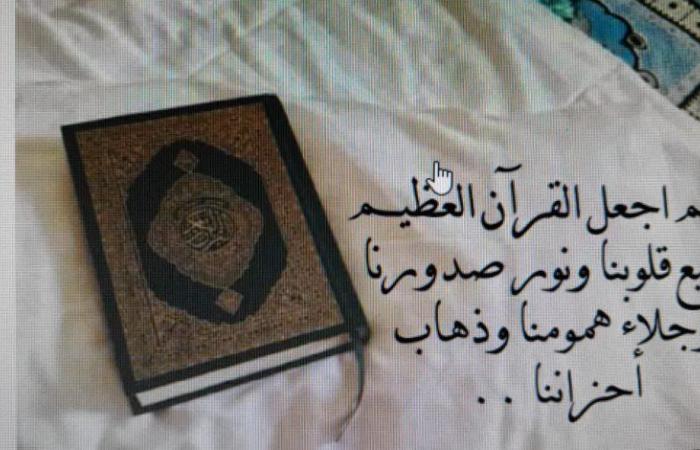 اجعل القرآن العظيم
قلوبنا ونور صدورنا
وجلاء همومنا وذهاب
أحزاننا . .